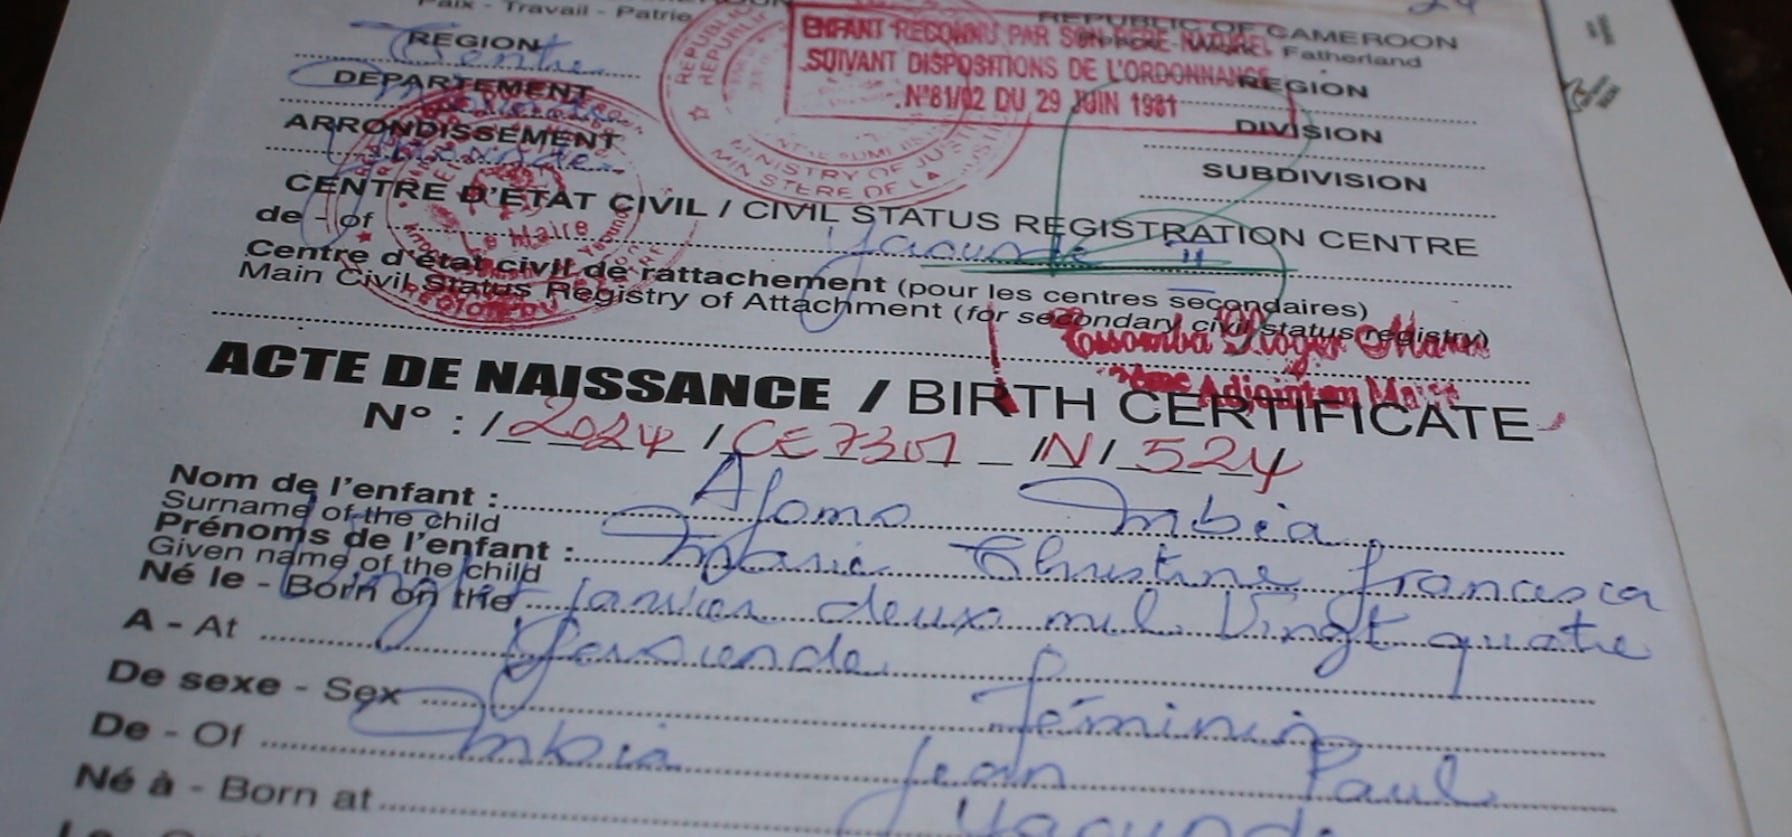 Paix - Travail - Patrie
REPUBLIC OF CAMEROON
Fatherland
ENFANT RECONNU PAR SON PERE NATUREL
SUIVANT DISPOSITIONS DE L'ORDONNANCE
N°81/02 DU 29 JUIN 1981
REGION
Centre
DEPARTEMENT
ARRONDISSEMENT
REGION
DIVISION
SUBDIVISION
MINISTRY OF JUSTICE
MINISTERE DE LA JUSTICE
CENTRE D'ETAT CIVIL / CIVIL STATUS REGISTRATION CENTRE
de - of Yaounde II
Le Maire
Centre d'état civil de rattachement (pour les centres secondaires)
Main Civil Status Registry of Attachment (for secondary civil status registry)
Adjoint au Maire
ACTE DE NAISSANCE / BIRTH CERTIFICATE
N° : /2024/CE7301_/N/524
Nom de l'enfant : Afomo Mbia
Surname of the child
Prénoms de l'enfant : Marie Christine francesca
Given name of the child
Né le - Born on the janvier deux mil Vingt quatre
A - At Yaounde
De sexe - Sex féminin
De - Of Mbia Jean Paul
Né à - Born at Yaounde